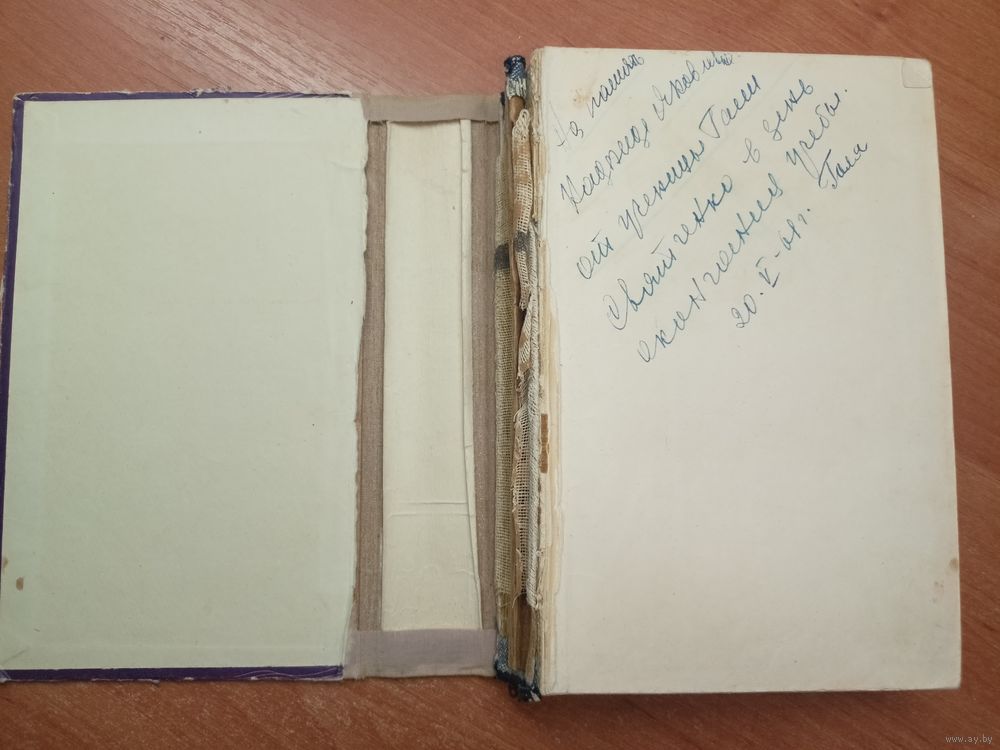 На память
Надежде Яковлевне
от ученицы Гали
в день
окончания учебы.
20. V - 61 г. Гала
www.ay.by